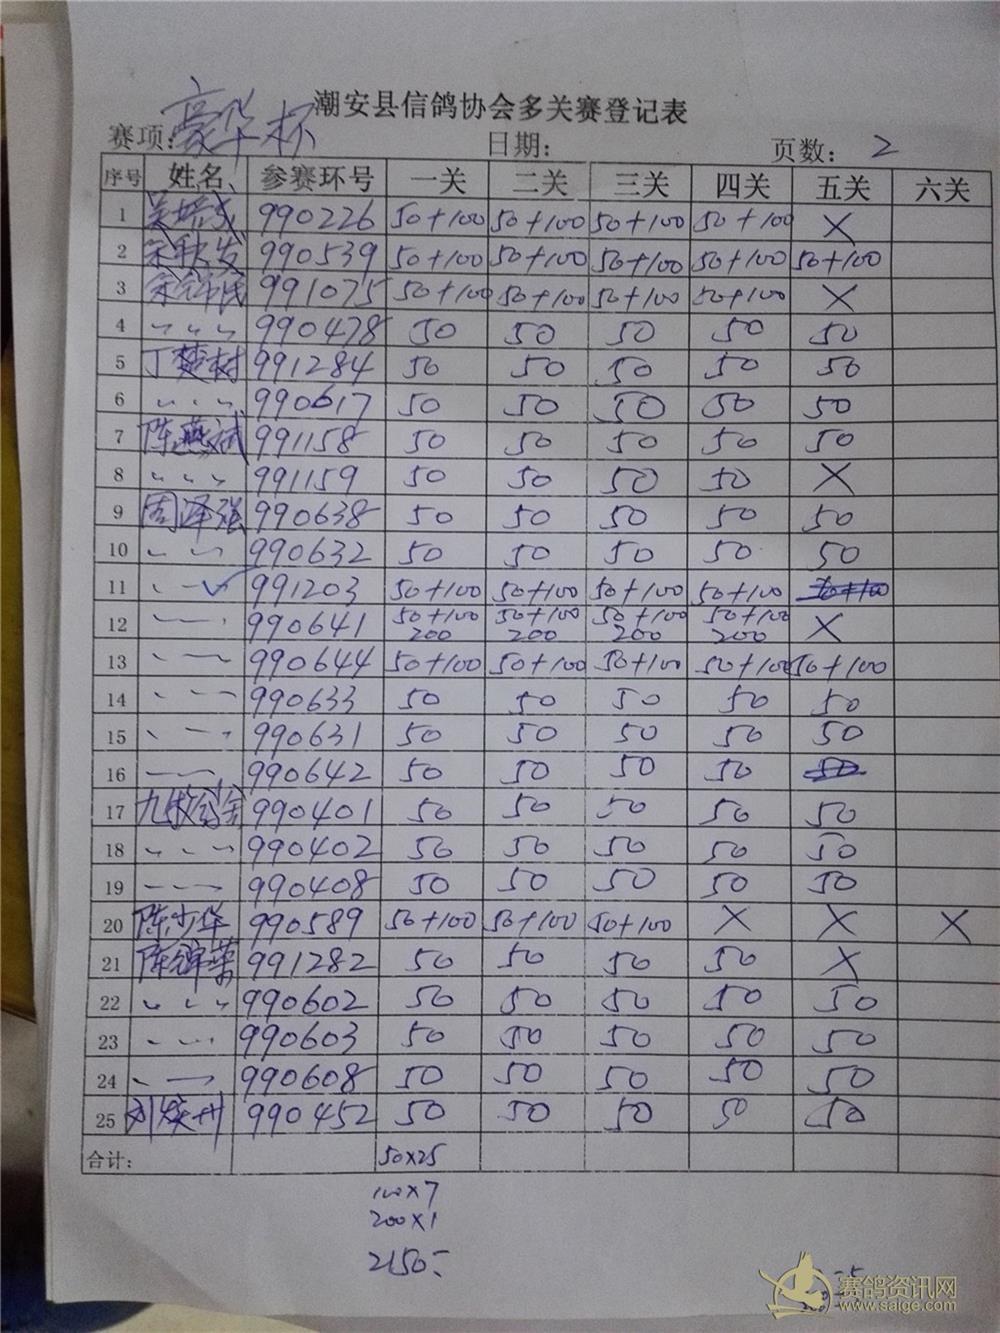 潮安县信鸽协会多关赛登记表
赛项: 豪华杯 日期: 页数: 2
序号 姓名 参赛环号 一关 二关 三关 四关 五关 六关
1 990226 50+100 50+100 50+100 50+100 X
2 990539 50+100 50+100 50+100 50+100 50+100
3 991075 50+100 50+100 50+100 50+100 X
4 990478 50 50 50 50 50
5 丁楚树 991284 50 50 50 50 50
6 990617 50 50 50 50 50
7 陈燕斌 991158 50 50 50 50 50
8 991159 50 50 50 50 X
9 周泽强 990638 50 50 50 50 50
10 990632 50 50 50 50 50
11 991203 50+100 50+100 50+100 50+100 50+100
12 990641 50+100 200 50+100 200 50+100 200 50+100 200 X
13 990644 50+100 50+100 50+100 50+100 50+100
14 990633 50 50 50 50 50
15 990631 50 50 50 50 50
16 990642 50 50 50 50 50
17 990401 50 50 50 50 50
18 990402 50 50 50 50 50
19 990408 50 50 50 50 50
20 陈少华 990589 50+100 50+100 50+100 X X X
21 991282 50 50 50 50 X
22 990602 50 50 50 50 50
23 990603 50 50 50 50 50
24 990608 50 50 50 50 50
25 990452 50 50 50 50 50
合计: 50×25
100×7
200×1
2150
赛鸽资讯网
www.saige.com